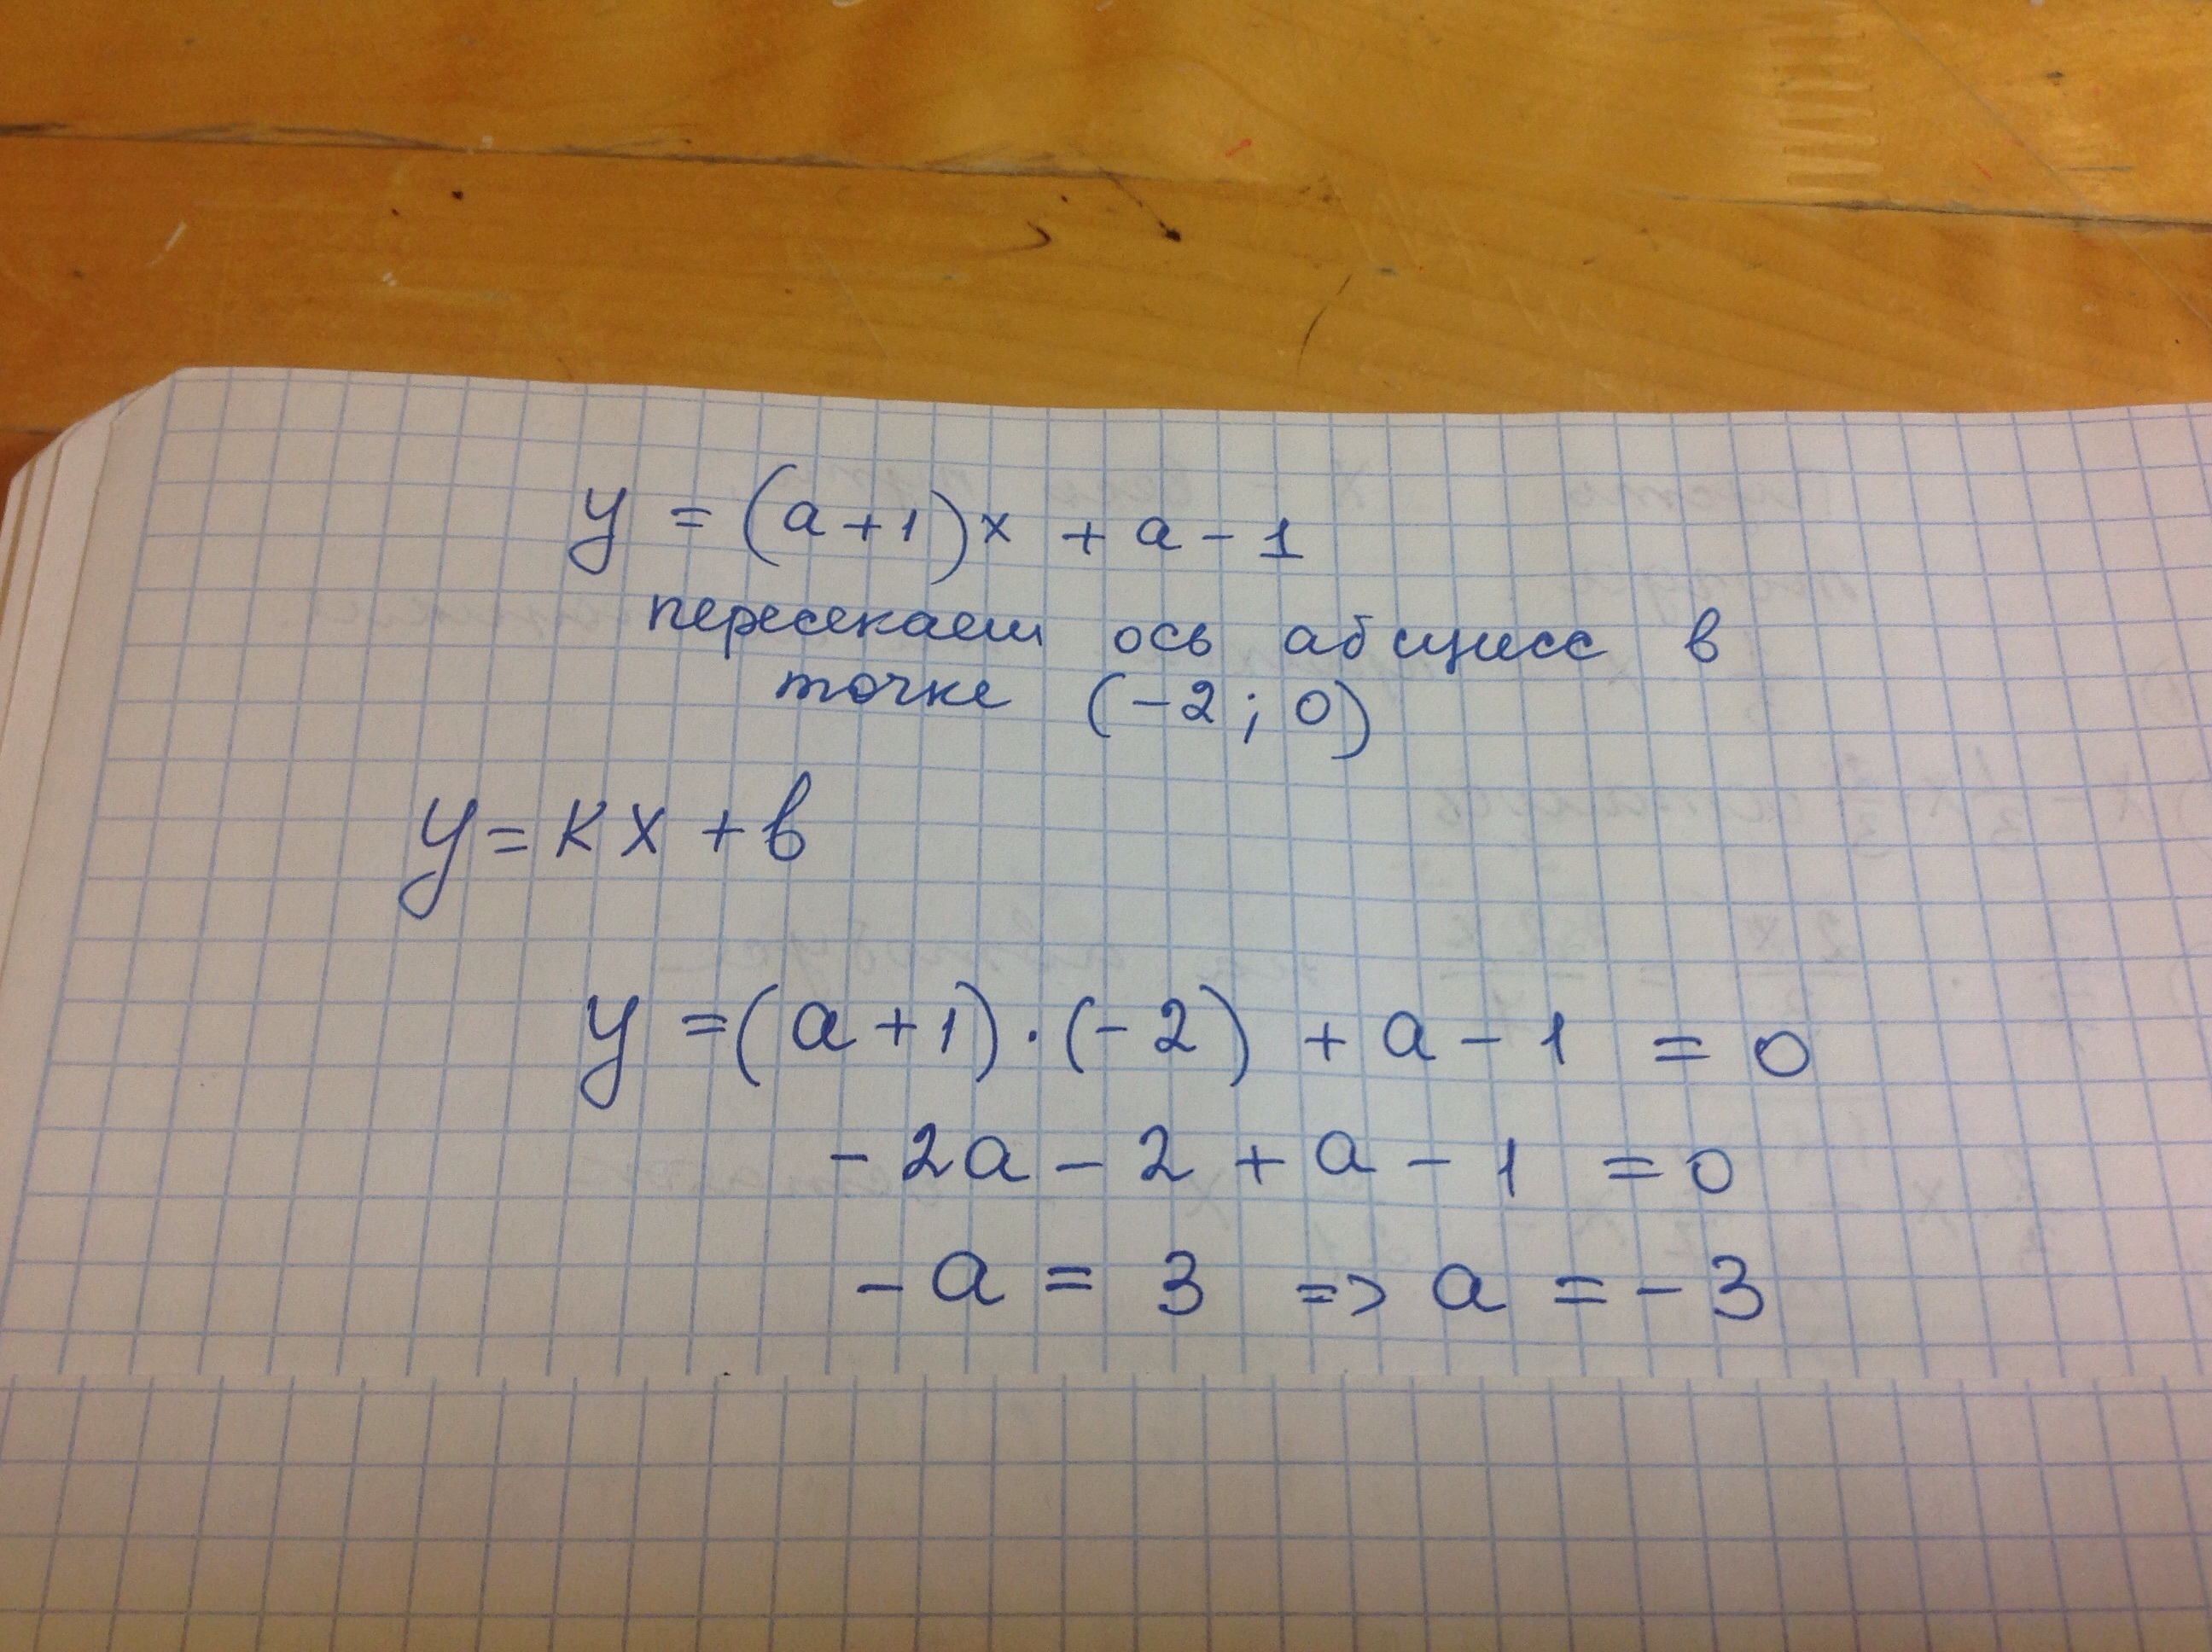 y = (a+1)x + a - 1
пересекает ось абсцисс в
точке (-2; 0)
y = kx + b
y = (a+1)·(-2) + a - 1 = 0
-2a - 2 + a - 1 = 0
-a = 3 => a = -3